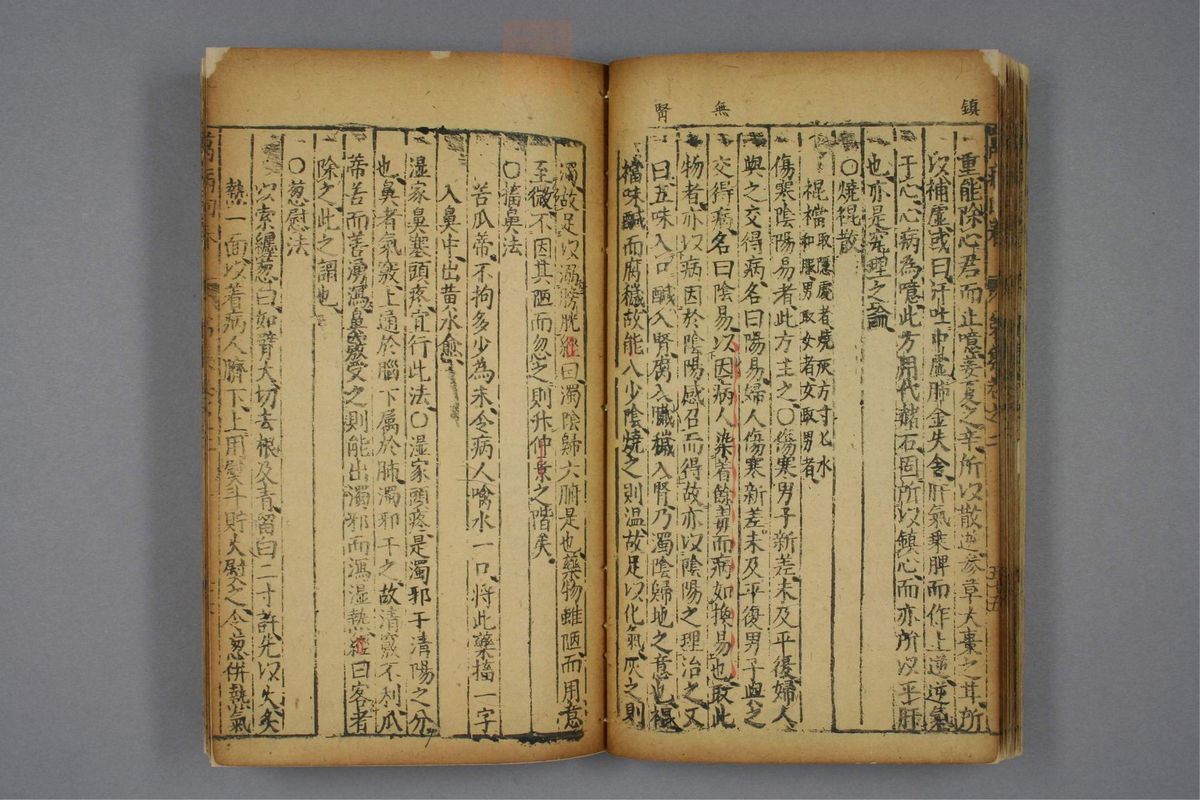 鎮
無
腎
重能除心君而止噫姜夏之辛所以散逆參草大棗之甘所
以補虛或曰汗吐中虛肺金失舍肝氣乘脾而作上逆逆氣
于心心病為噫此方用代赭石固所以鎮心而亦所以平肝
也亦是究理之論
〇燒裩散
裩襠取隱處者燒灰方寸匕水
和服男取女者女取男者
傷寒陰陽易者此方主之〇傷寒男子新差未及平復婦人
與之交得病名曰陽易婦人傷寒新差未及平復男子與之
交得病名曰陰易以因病人染着餘毒而病如換易也取此
物者亦以病因於陰陽感召而得故亦以陰陽之理治之又
曰五味入口鹹入腎腐入腎穢入腎乃濁陰歸地之意也裩
襠味鹹而腐穢故能入少陰燒之則温故足以化氣灰之則
濁故足以溺膀胱經曰濁陰歸六腑是也藥物雖陋而用意
至微不因其陋而忽之則升仲景之階矣
〇搐鼻法
苦瓜蒂不拘多少為末令病人噙水一口將此藥搐一字
入鼻中出黃水愈
濕家鼻塞頭疼宜行此法〇濕家頭疼是濁邪干清陽之分
也鼻者氣竅上通於腦下属於肺濁邪干之故清竅不利瓜
蒂苦而善湧瀉鼻竅受之則能出濁邪而瀉濕熱經曰客者
除之此之謂也
〇葱慰法
以索纏葱白如臂大切去根及青留白二寸許先以火炙
熱一面以着病人臍下上用熨斗貯火熨之令葱併熱氣